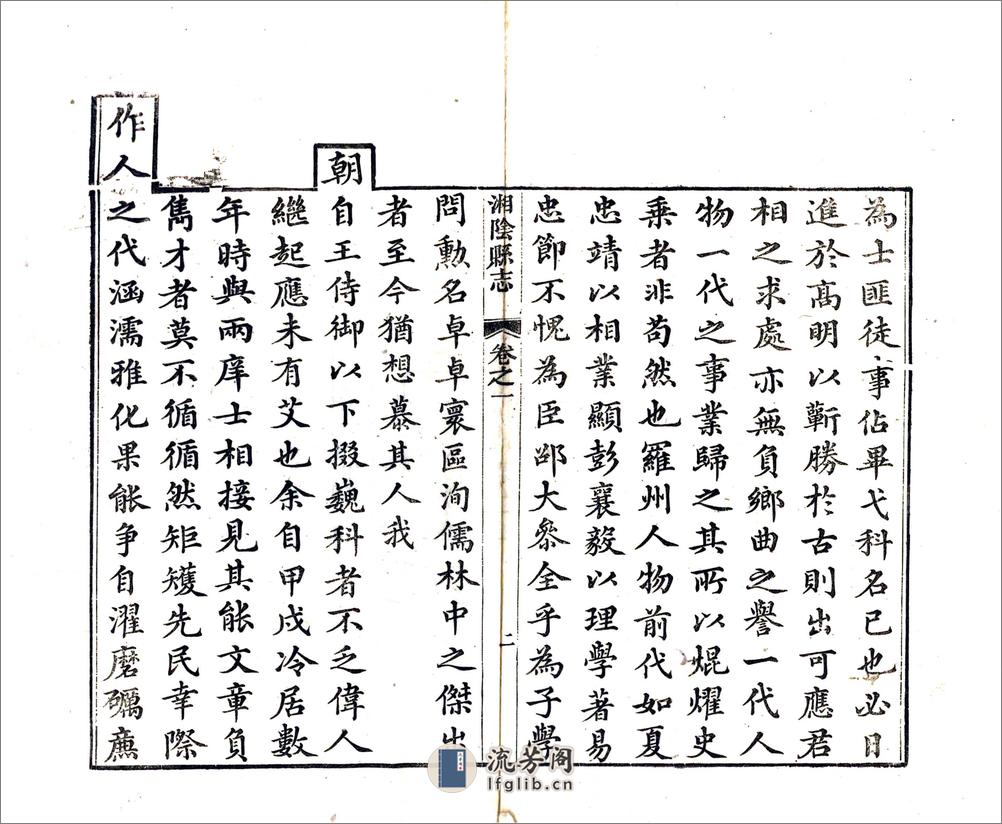 為士匪徒事佔畢弋科名已也必日
進於高明以蘄勝於古則出可應君
相之求處亦無負鄉曲之譽一代人
物一代之事業歸之其所以焜燿史
乘者非苟然也羅州人物前代如夏
忠靖以相業顯彭襄毅以理學著易
忠節不愧為臣邵大叅全乎為子學
湘陰縣志
卷之一
二
問勳名卓卓寰區洵儒林中之傑出
者至今猶想慕其人我
朝自王侍御以下掇巍科者不乏偉人
繼起應未有艾也余自甲戌冷居數
年時與兩庠士相接見其能文章負
雋才者莫不循循然矩矱先民幸際
作人之代涵濡雅化果能爭自濯磨礪廉
流芳阁
lfglib.cn